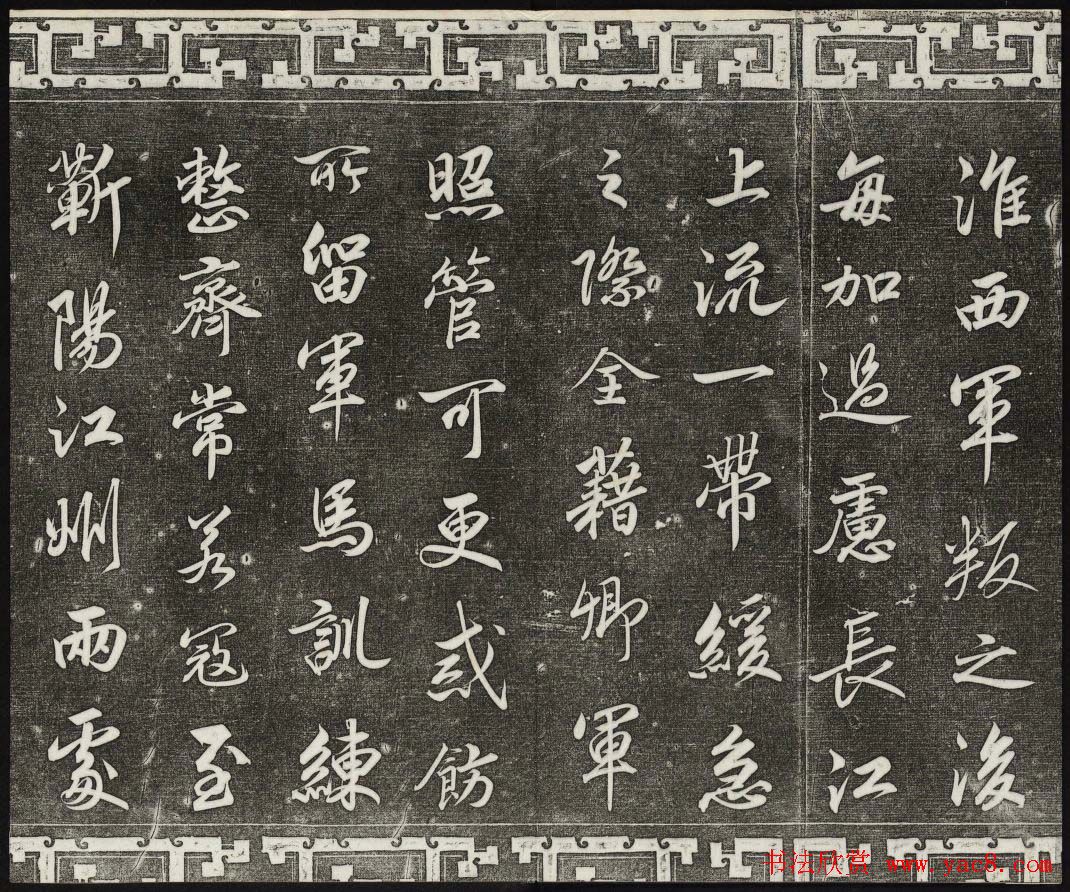 淮西軍叛之後
每加過慮長江
上流一帶緩急
之際全藉卿軍
照管可更戒飭
所留軍馬訓練
整齊常若寇至
蘄陽江州兩處
书法欣赏 www.yac8.com